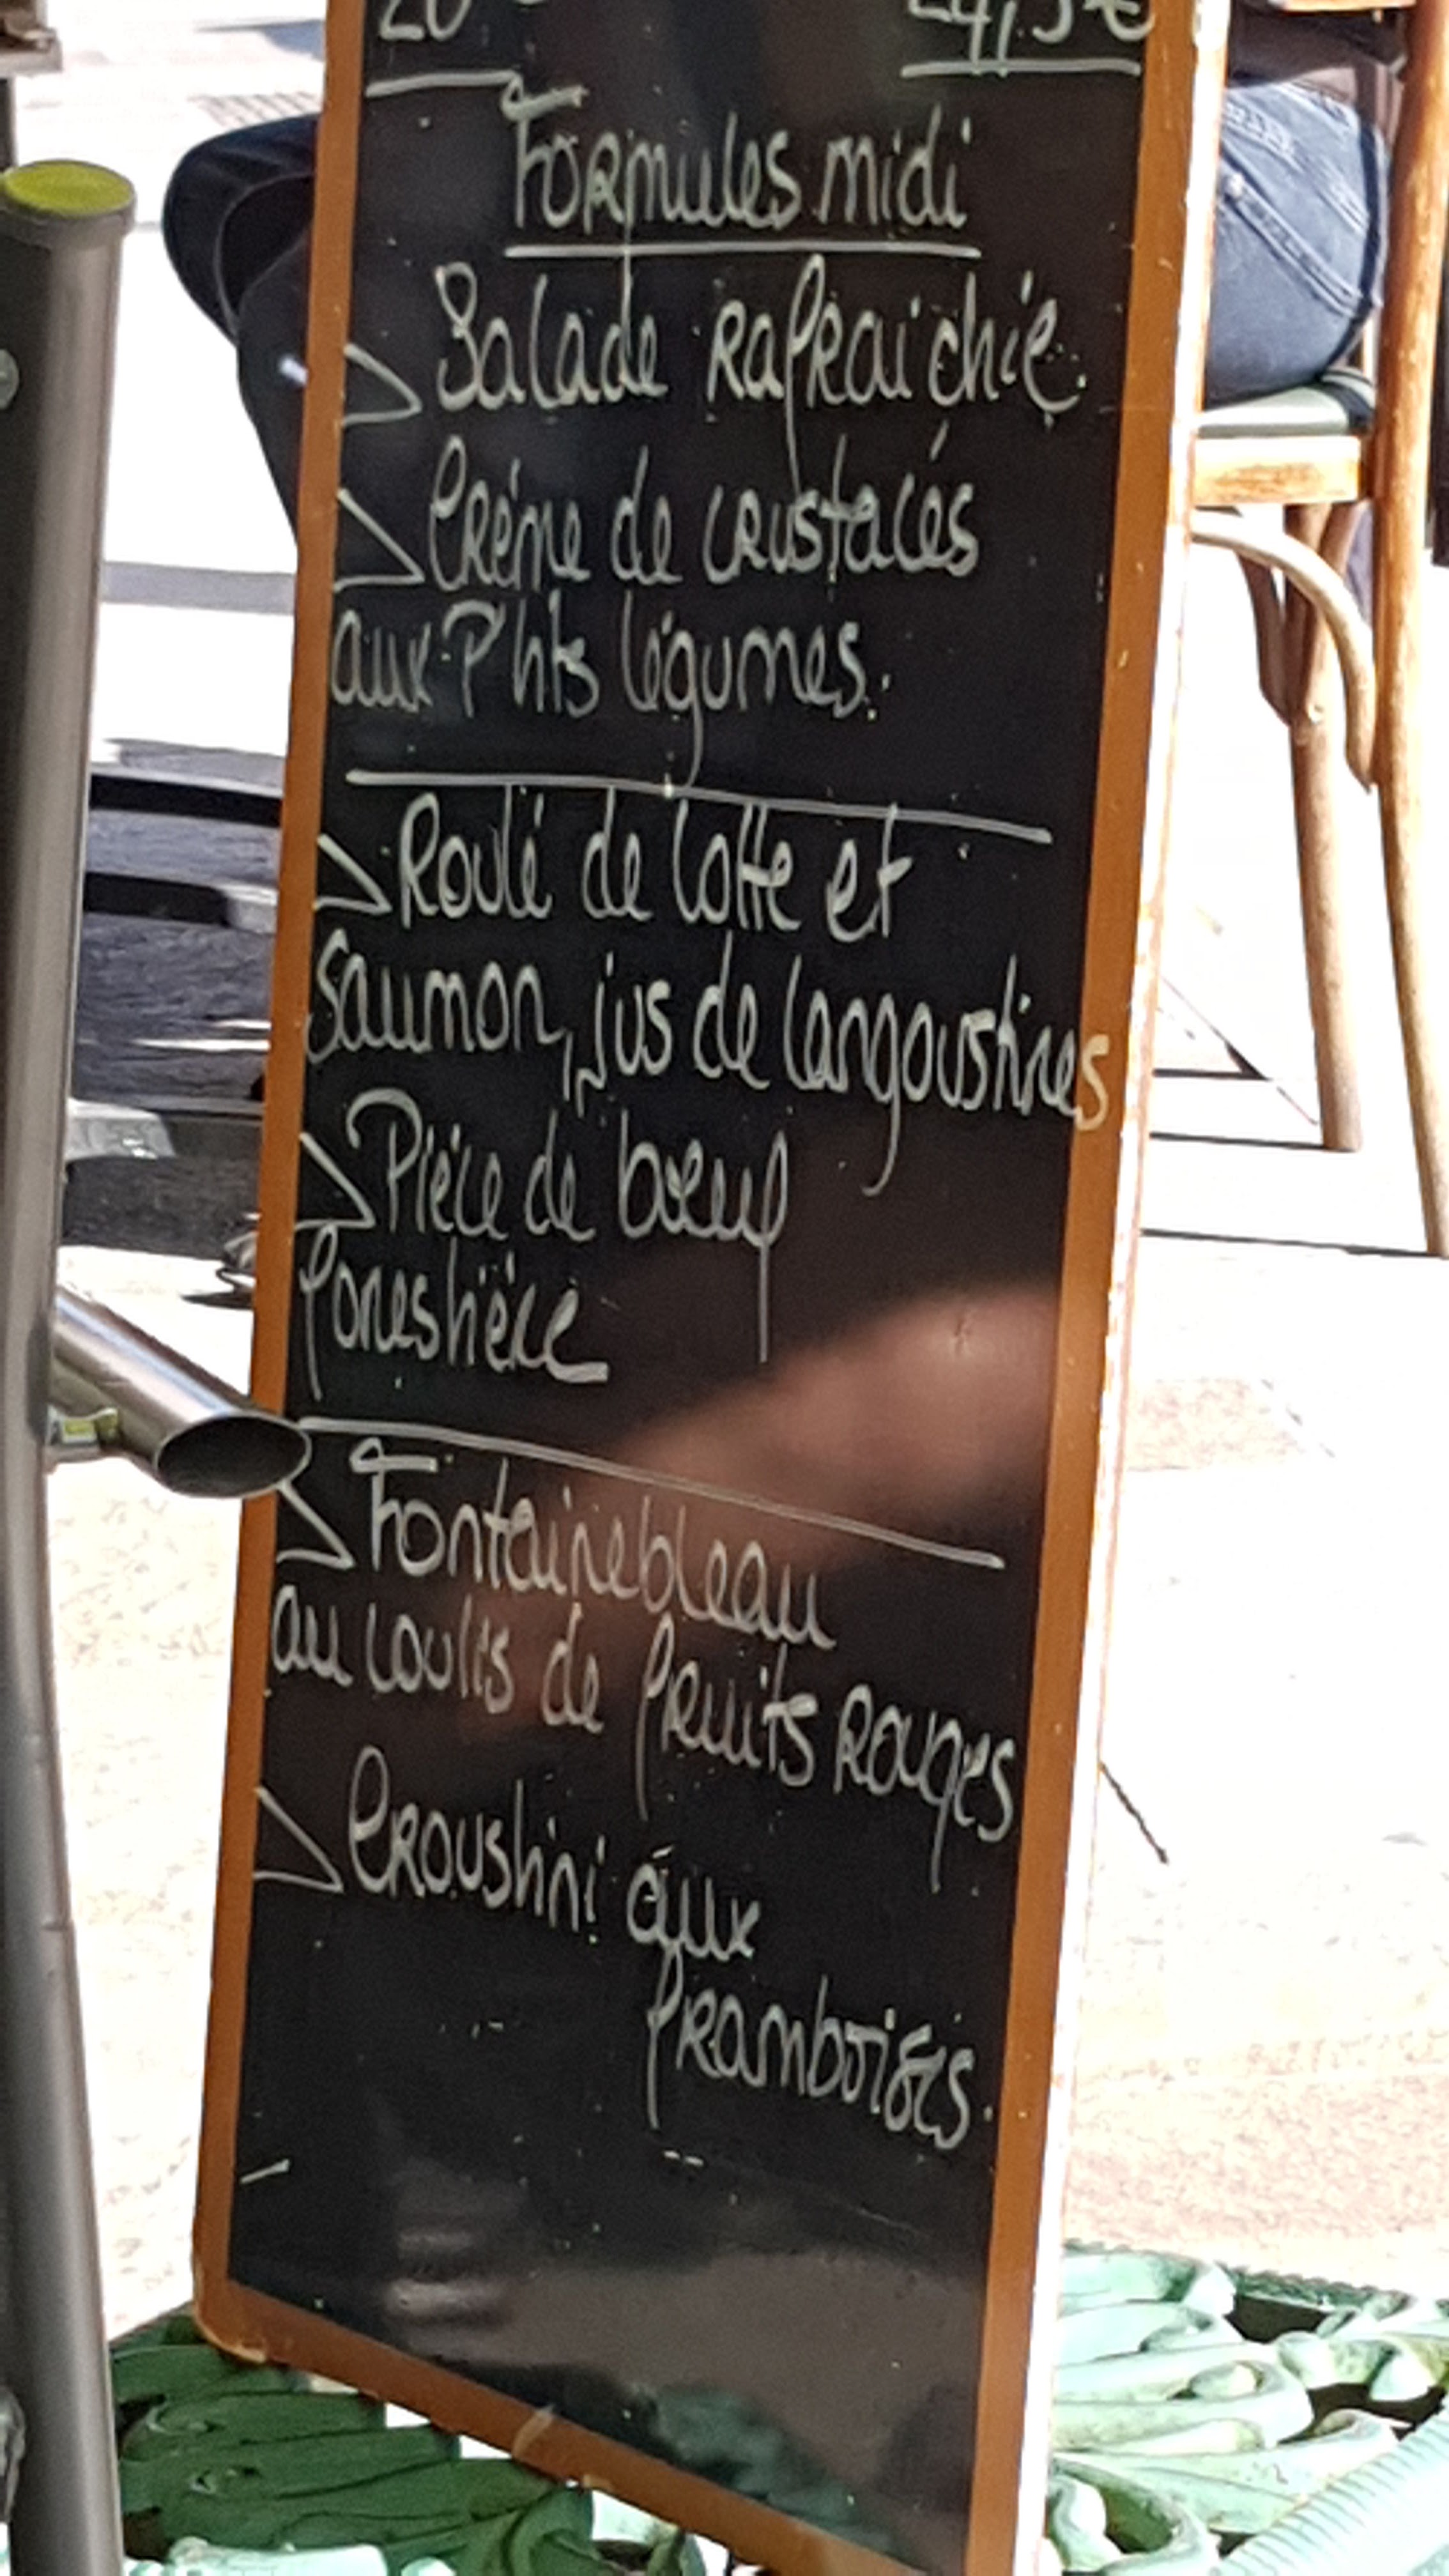 20
24,5€
Formules midi
Salade rafraichie.
Crème de crustacés
aux P'tits légumes.
Roulé de lotte et
saumon, jus de langoustines
Pièce de bœuf
forestière
Fontainebleau
au coulis de fruits rouges
Croustini aux
framboises.